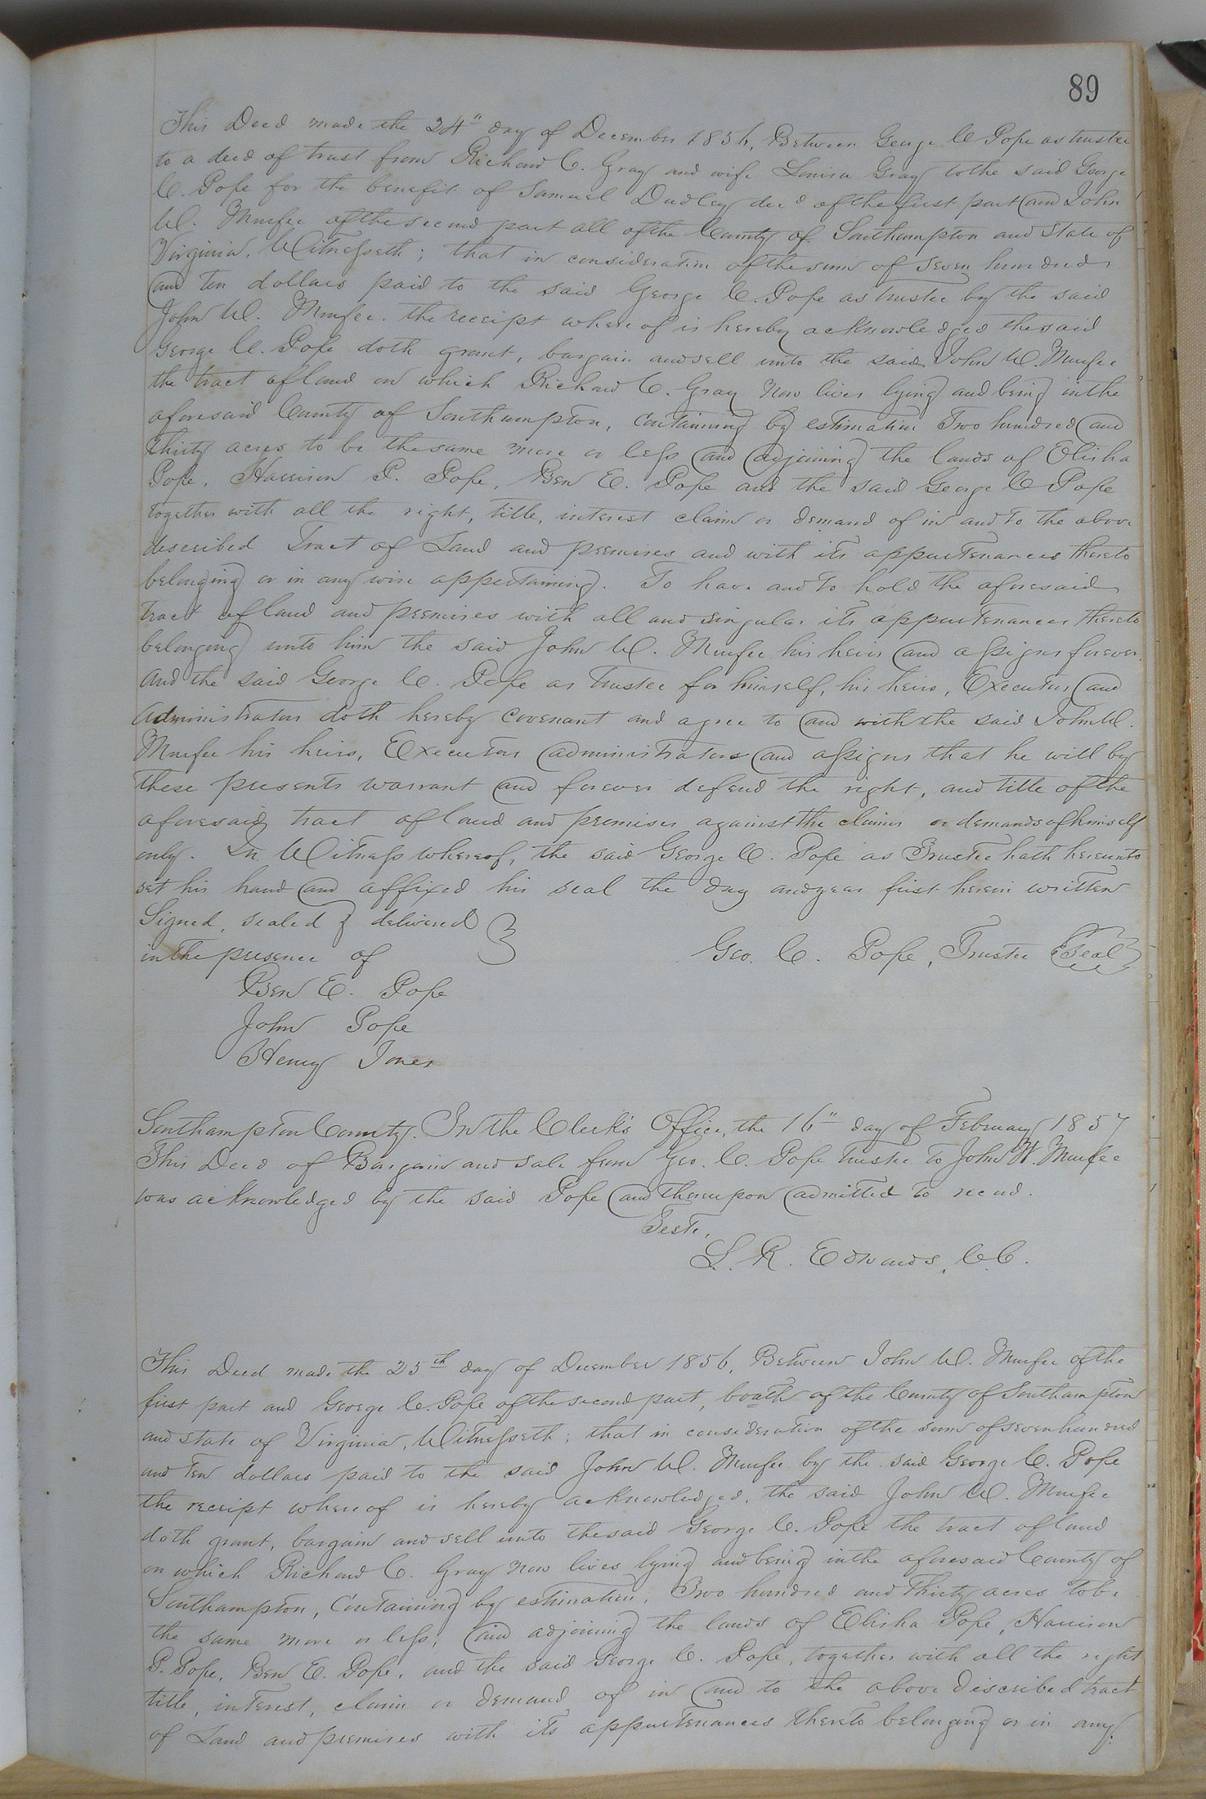 89
This Deed made the 24" day of December 1856, Between George C Pope as trustee
to a deed of trust from Richard C. Gray and wife Louisa Gray to the said George
C. Pope for the benefit of Samuel Dudley dec'd of the first part and John
W. Murfee of the second part all of the County of Southampton and State of
Virginia, Witnesseth; that in consideration of the sum of seven hundred
and ten dollars paid to the said George C. Pope as trustee by the said
John W. Murfee. the receipt whereof is hereby acknowledged the said
George C. Pope doth grant, bargain and sell unto the said John W. Murfee
the tract of land on which Richard C. Gray now lives lying and being in the
aforesaid County of Southampton, containing by estimation Two hundred and
thirty acres to be the same more or less and adjoining the lands of Elisha
Pope, Harrison P. Pope, Ben E. Pope and the said George C Pope
together with all the right, title, interest claim or demand of in and to the above
described Tract of Land and premises and with its appurtenances thereto
belonging or in any wise appertaining. To have and to hold the aforesaid
tract of land and premises with all and singular its appurtenances thereto
belonging unto him the said John W. Murfee his heirs and assigns forever.
And the said George C. Pope as Trustee for himself, his heirs, Executors and
administrators doth hereby covenant and agree to and with the said John W.
Murfee his heirs, Executors administrators and assigns that he will by
these presents warrant and forever defend the right, and title of the
aforesaid tract of land and premises against the claims or demands of himself
only. In Witness whereof, the said George C. Pope as Trustee hath hereunto
set his hand and affixed his seal the day and year first herein written
Signed, sealed & delivered }
in the presence of Geo. C. Pope, Trustee {Seal}
Ben E. Pope
John Pope
Henry Jones
Southampton County. In the Clerk's Office, the 16" day of February 1857
This Deed of Bargain and sale from Geo. C. Pope trustee to John W. Murfee
was acknowledged by the said Pope and thereupon admitted to record.
Teste,
L. R. Edwards, C.C.
This Deed made the 25th day of December 1856, Between John W. Murfee of the
first part and George C. Pope of the second part, boath of the County of Southampton
and state of Virginia, Witnesseth; that in consideration of the sum of seven hundred
and Ten dollars paid to the said John W. Murfee by the said George C. Pope
the receipt whereof is hereby acknowledged, the said John W. Murfee
doth grant, bargain and sell unto the said George C. Pope the tract of land
on which Richard C. Gray now lives lying and being in the aforesaid County of
Southampton, containing by estimation, Two hundred and Thirty acres to be
the same more or less, and adjoining the lands of Elisha Pope, Harrison
P. Pope, Ben E. Pope, and the said George C. Pope, together with all the right
title, interest, claim or demand of in and to the above described tract
of Land and premises with its appurtenances thereto belonging or in any